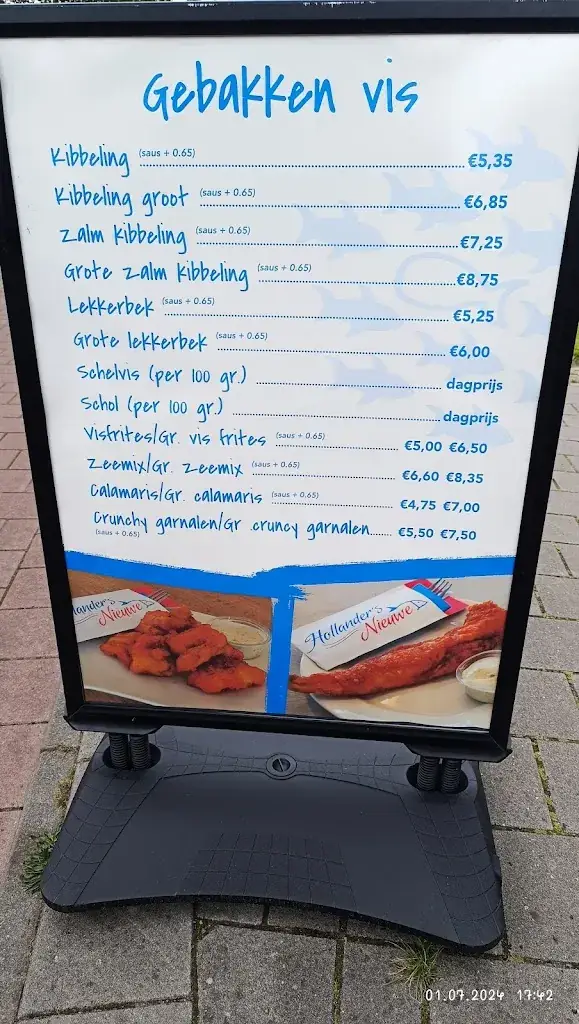 Gebakken vis
Kibbeling (saus + 0.65) €5,35
Kibbeling groot (saus + 0.65) €6,85
Zalm Kibbeling (saus + 0.65) €7,25
Grote zalm Kibbeling (saus + 0.65) €8,75
Lekkerbek (saus + 0.65) €5,25
Grote lekkerbek (saus + 0.65) €6,00
Schelvis (per 100 gr.) dagprijs
Schol (per 100 gr.) dagprijs
Visfrites/Gr. vis frites (saus + 0.65) €5,00 €6,50
Zeemix/Gr. zeemix (saus + 0.65) €6,60 €8,35
Calamaris/Gr. calamaris (saus + 0.65) €4,75 €7,00
Crunchy garnalen/Gr .cruncy garnalen €5,50 €7,50
(saus + 0.65)
llander's
Nieuwe
Hollander's
Nieuwe
01.07.2024 17:42